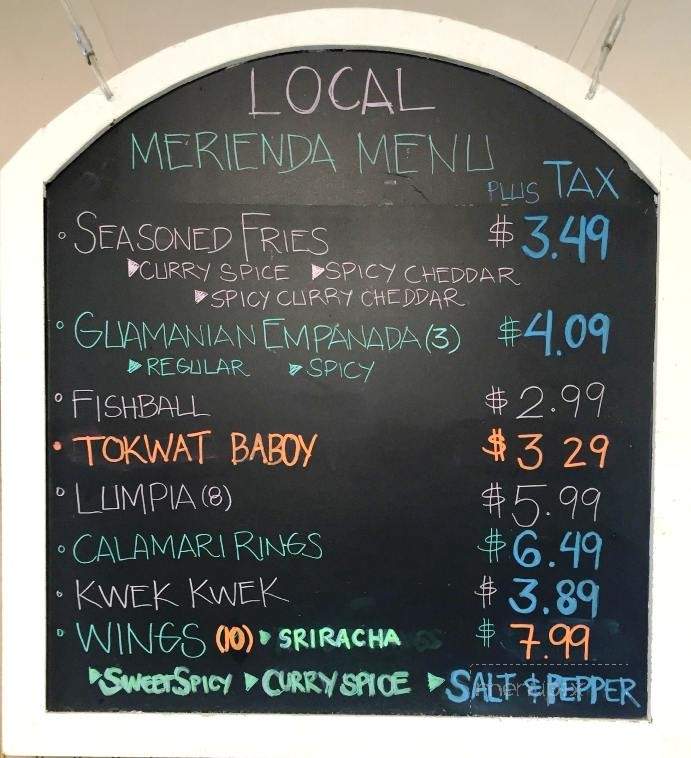 LOCAL
MERIENDA MENU
PLUS TAX
• SEASONED FRIES $ 3.49
▶CURRY SPICE ▶SPICY CHEDDAR
▶SPICY CURRY CHEDDAR
• GUAMANIAN EMPANADA (3) $4.09
▶REGULAR ▶SPICY
• FISHBALL $2.99
• TOKWAT BABOY $3 29
• LUMPIA (8) $5.99
• CALAMARI RINGS $6.49
• KWEK KWEK $ 3.89
• WINGS (10) ▶SRIRACHA $ 7.99
▶SWEETSPICY ▶CURRY SPICE ▶SALT & PEPPER